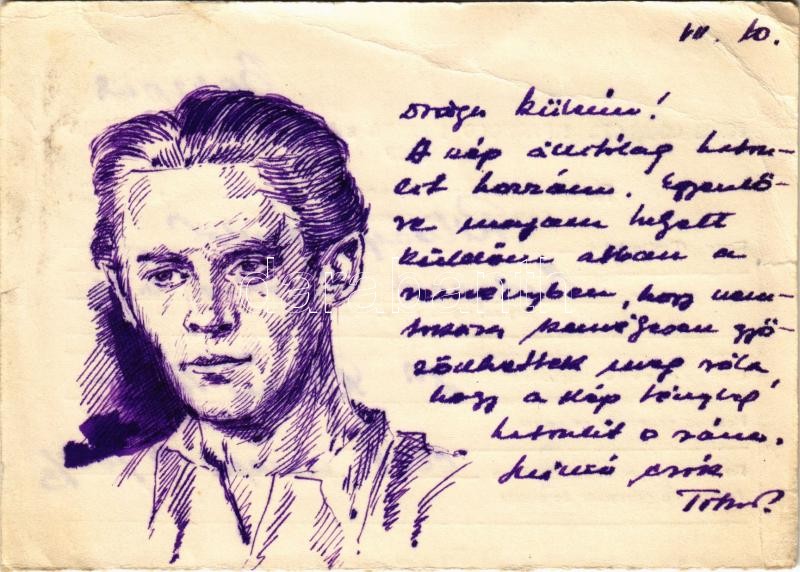 VII. 10.
Drága
A kép állítólag hason-
lít hozzám. Egyenlő-
re magam helyett
küldöm abban a
reményben, hogy nem-
sokára személyesen győ-
ződhettek meg róla
hogy a kép tényleg
hasonlít
csók
darabanth